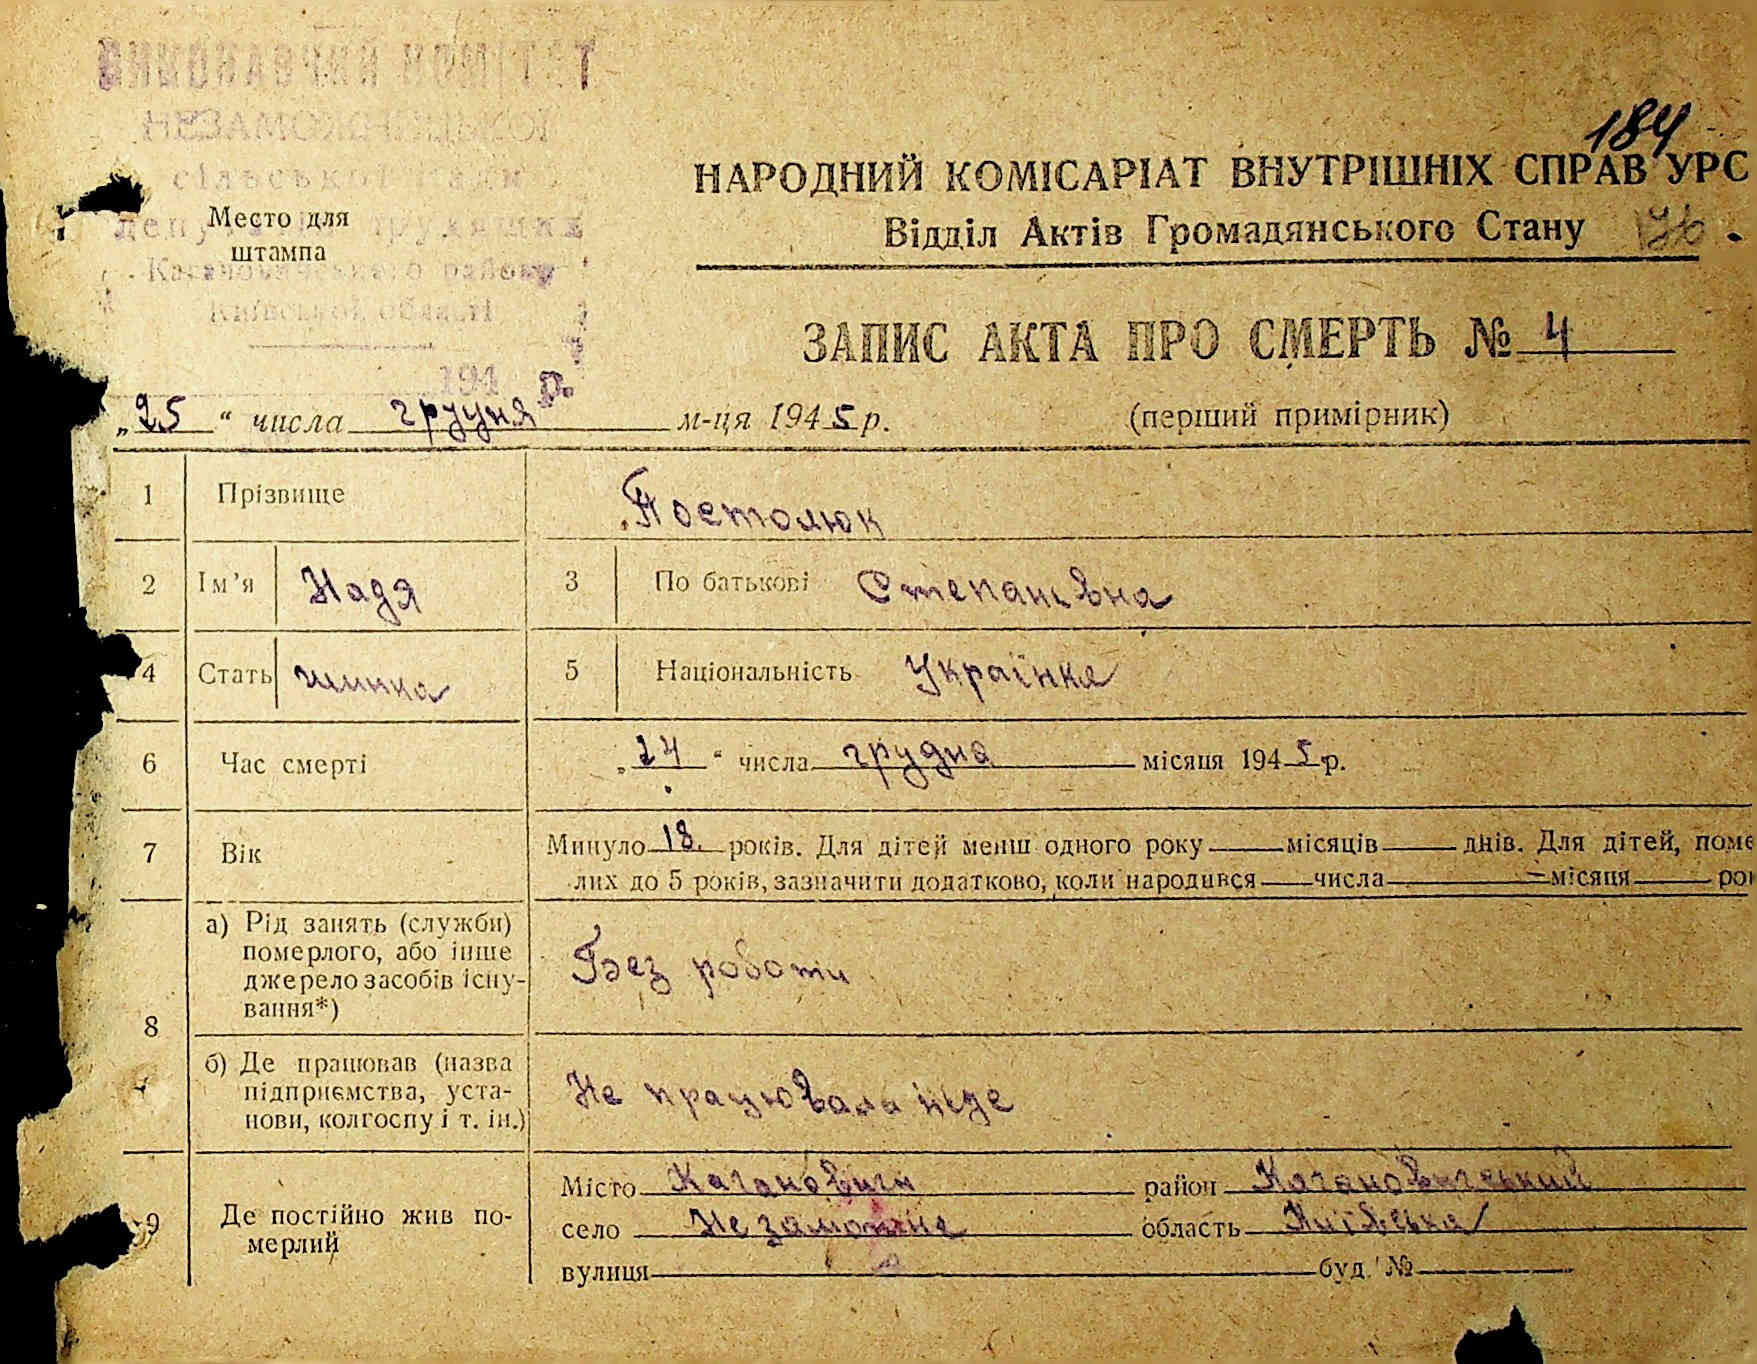 ВИКОНАВЧИЙ КОМІТЕТ
НЕЗАМОЖНЕНСЬКОЇ
сільської ради
депутатів трудящих
Кагановичського району
Київської області
194 р.
Место для
штампа
184
НАРОДНИЙ КОМІСАРІАТ ВНУТРІШНІХ СПРАВ УРС
Відділ Актів Громадянського Стану
ЗАПИС АКТА ПРО СМЕРТЬ № 4
„25“ числа грудня м-ця 1945 р. (перший примірник)
1 Прізвище Постолюк
2 Ім’я Надя 3 По батькові Степанівна
4 Стать жинка 5 Національність Українка
6 Час смерті „24“ числа грудня місяця 1945 р.
7 Вік Минуло 18 років. Для дітей менш одного року місяців днів. Для дітей, поме
лих до 5 років, зазначити додатково, коли народився числа місяця рок
8 а) Рід занять (служби)
померлого, або інше
джерело засобів існу-
вання*)
Без роботи
б) Де працював (назва
підприємства, уста-
нови, колгоспу і т. ін.)
Не працювала ніде
9 Де постійно жив по-
мерлий
Місто Кагановичи район Кагановичський
село Незаможне область Київська
вулиця буд. №